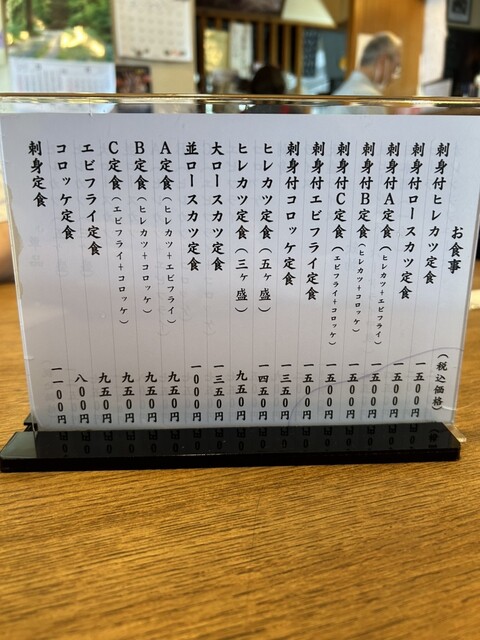 お食事 (税込価格)
刺身付ヒレカツ定食 一五00円
刺身付ロースカツ定食 一五00円
刺身付A定食(ヒレカツ+エビフライ) 一五00円
刺身付B定食(ヒレカツ+コロッケ) 一五00円
刺身付C定食(エビフライ+コロッケ) 一五00円
刺身付エビフライ定食 一五00円
刺身付コロッケ定食 一三五0円
ヒレカツ定食(五ヶ盛) 一四五0円
ヒレカツ定食(三ヶ盛) 九五0円
大ロースカツ定食 一三五0円
並ロースカツ定食 一000円
A定食(ヒレカツ+エビフライ) 九五0円
B定食(ヒレカツ+コロッケ) 九五0円
C定食(エビフライ+コロッケ) 九五0円
エビフライ定食 九五0円
コロッケ定食 八00円
刺身定食 一一00円